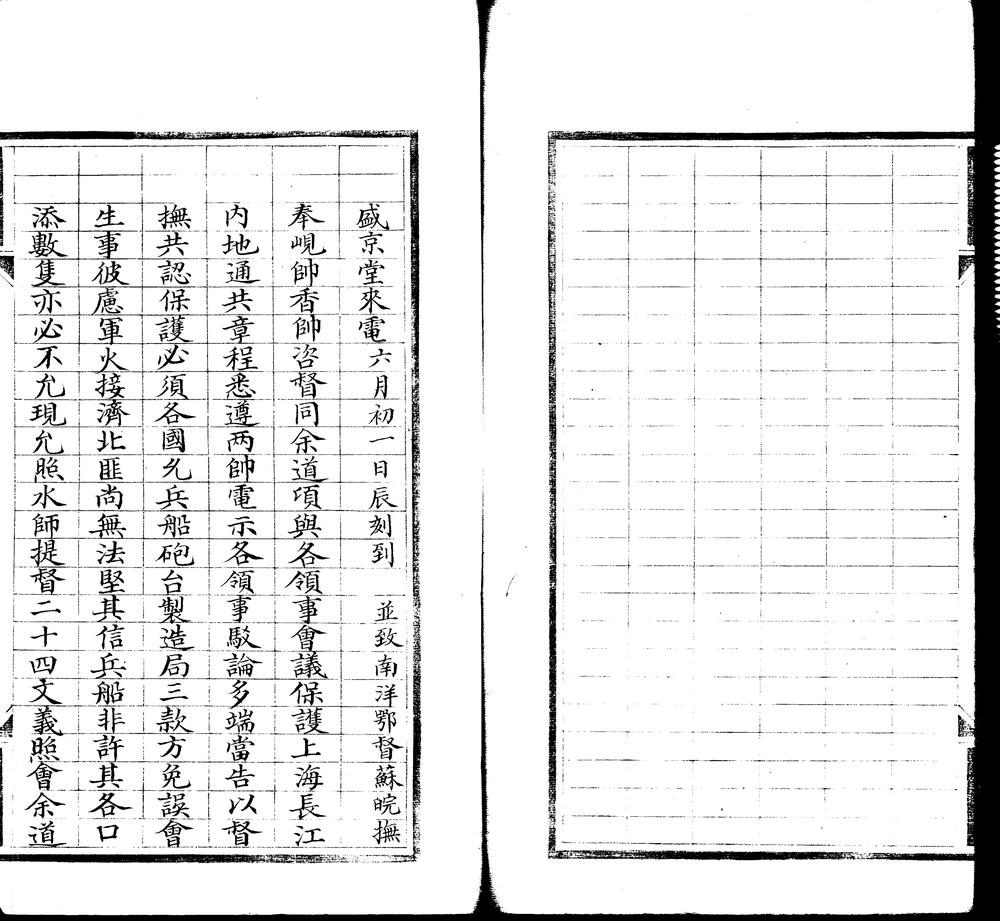 盛京堂來電六月初一日辰刻到　並致南洋鄂督蘇皖撫
奉峴帥香帥咨督同余道項與各領事會議保護上海長江
内地通共章程悉遵两帥電示各領事駁論多端當告以督
撫共認保護必須各國允兵船砲台製造局三款方免誤會
生事彼慮軍火接濟北匪尚無法堅其信兵船非許其各口
添數隻亦必不允現允照水師提督二十四文義照會余道